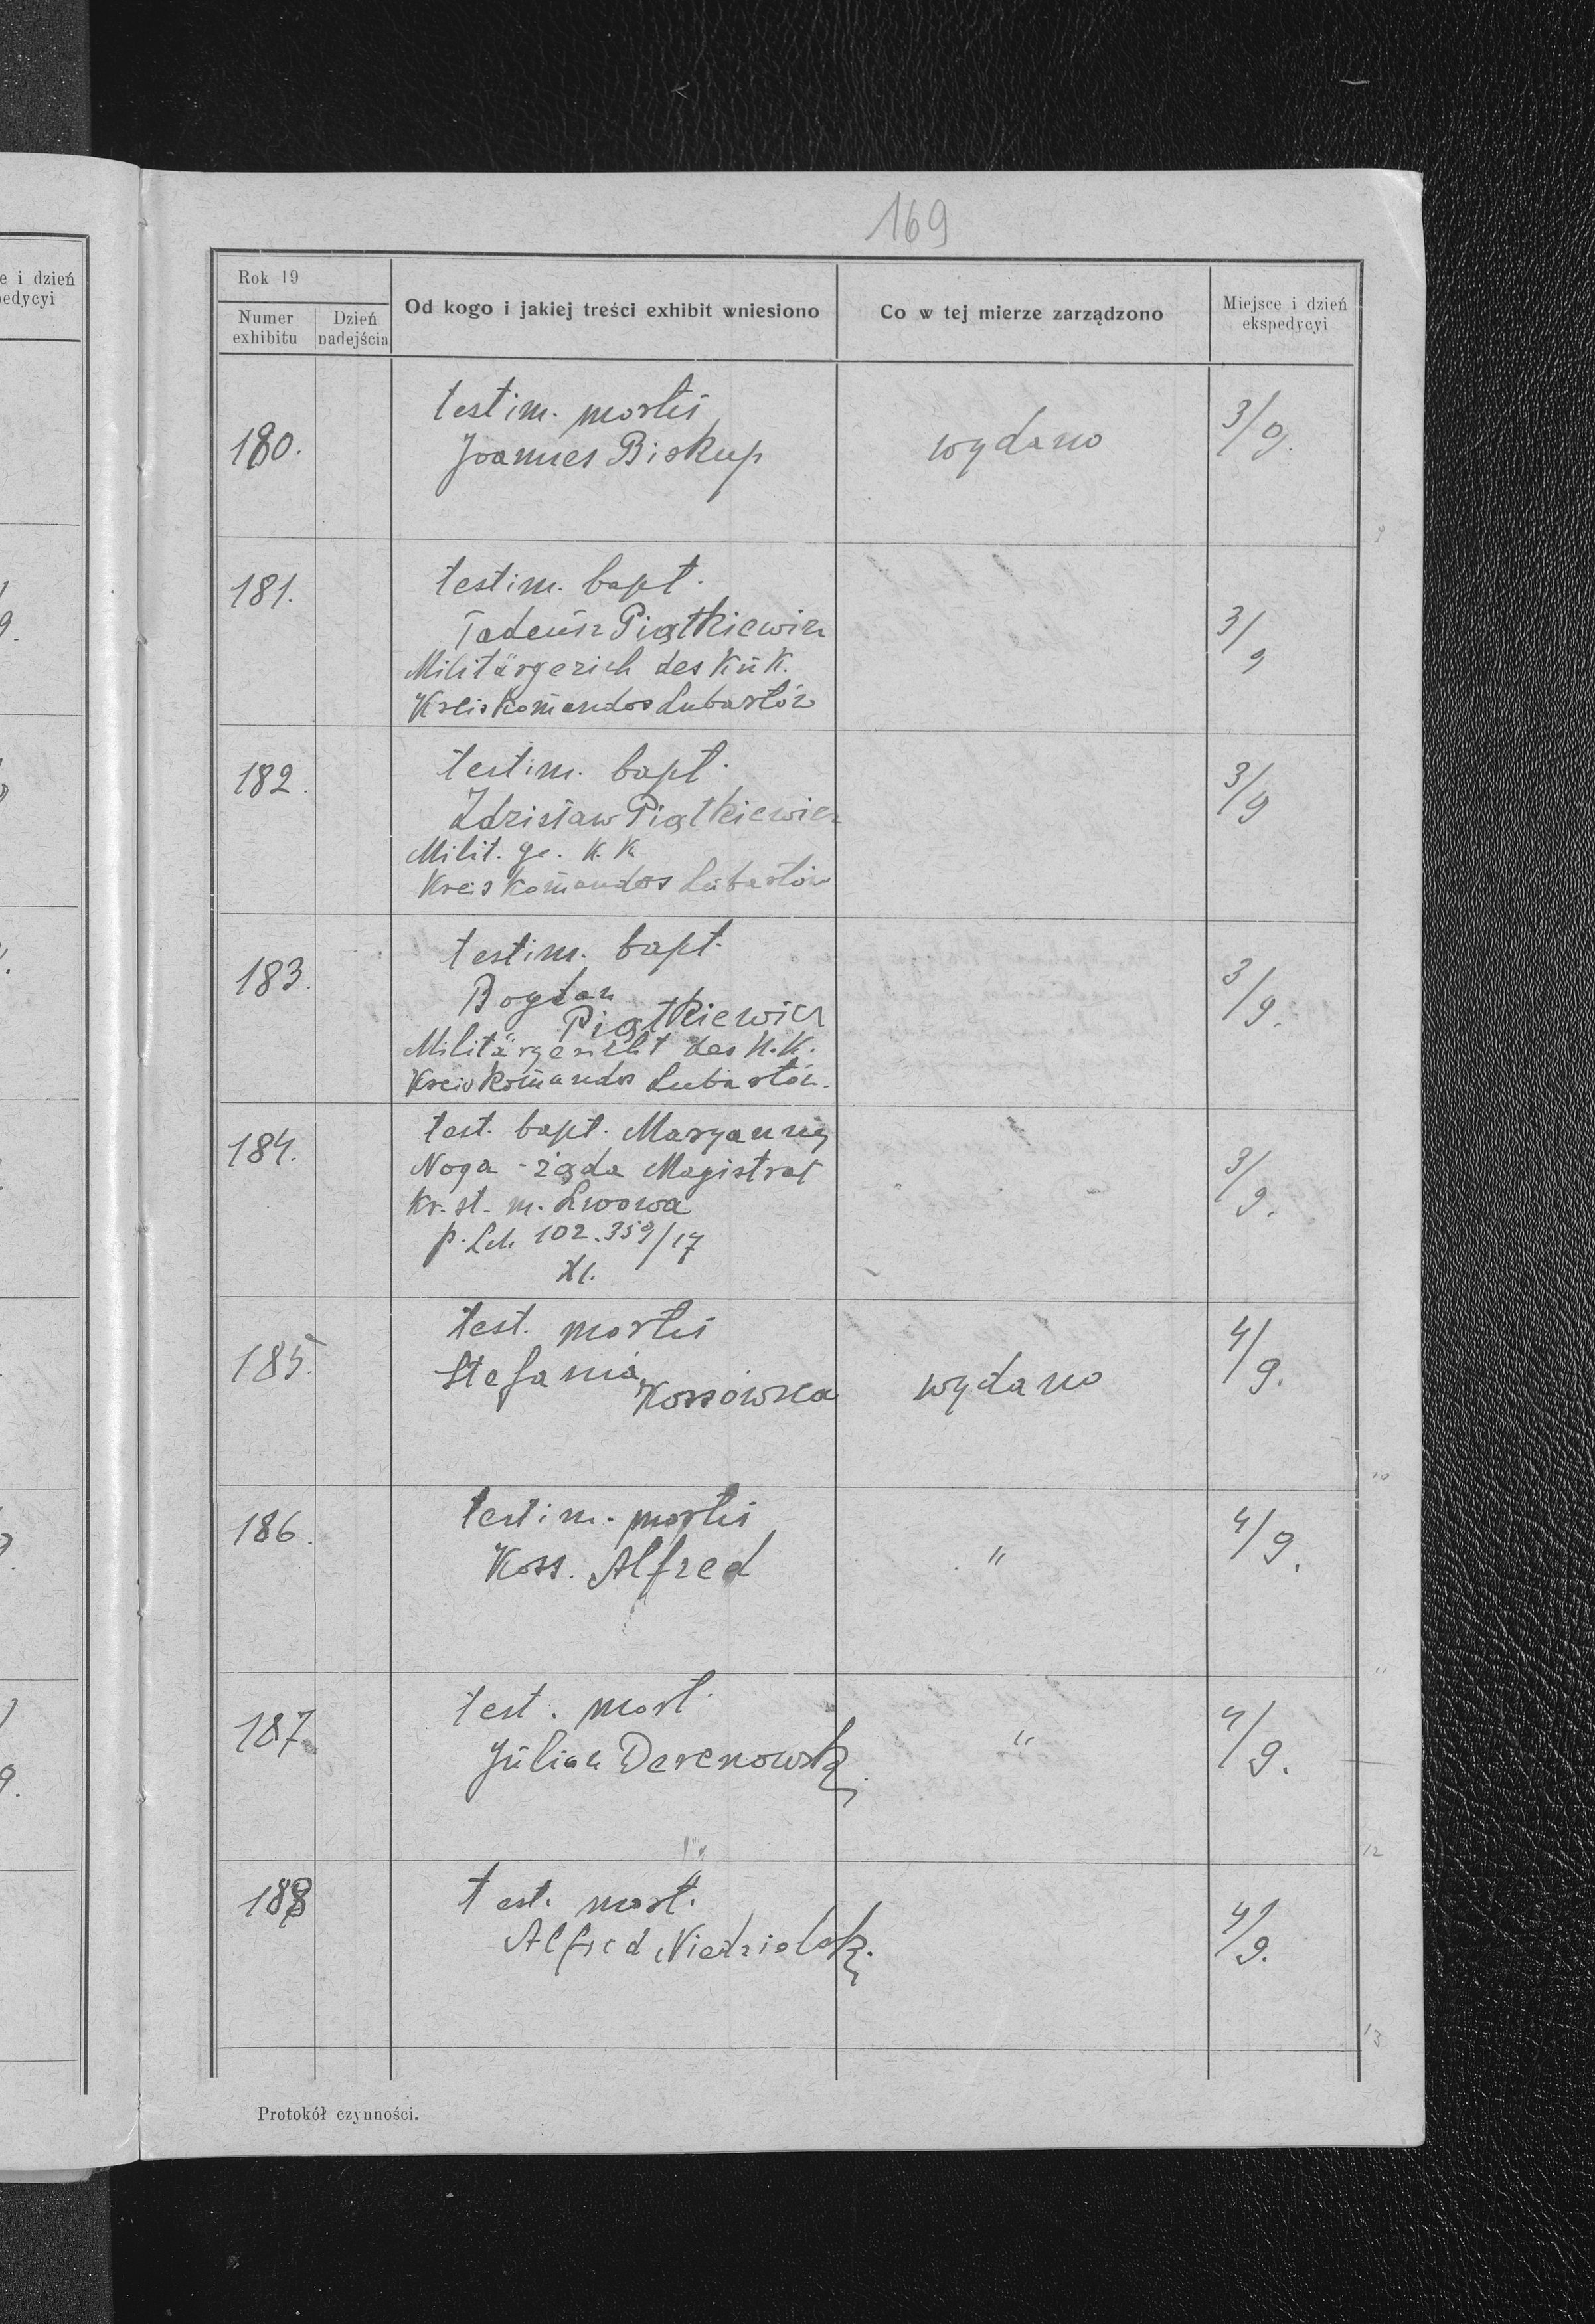 169
e i dzień
pedycyi
Rok 19
Numer exhibitu
Dzień nadejścia
Od kogo i jakiej treści exhibit wniesiono
Co w tej mierze zarządzono
Miejsce i dzień ekspedycyi
180.
testim. mortis
Joannes Biskup
wydano
3/9.
181.
testim. bapt.
Tadeusz Piątkiewicz
Militärgerich des K ü K.
Kreiskom̄andos Lubartów
3/9
182.
testim. bapt.
Zdzisław Piątkiewicz
Milit. ge. K. K
Kreiskom̄andos Lubartów
3/9
183.
testim. bapt.
Bogdan
Piątkiewicz
Militärgericht des K. K.
Kreiskom̄andos Lubartów.
3/9.
184.
test. bapt. Maryanny
Noga - żąda Magistrat
Kr. st. m. Lwowa
102.359/17
XI.
3/9.
185.
test. mortis
Stefania
Kossowska
wydano
4/9.
186.
testim. mortis
Koss. Alfred
"
4/9.
187
test. mort.
Julian Derenowski
"
4/9.
188
test. mort.
Alfred Niedzielski.
4/9.
12
13
Protokół czynności.